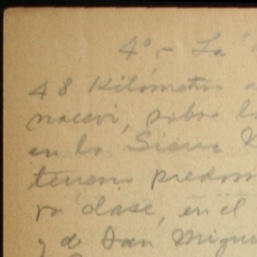 4°,- La
48 Kilómetros a
nacori, sobre l
en la Sierra
terreno predom
ra clase, en el
y de San Migue